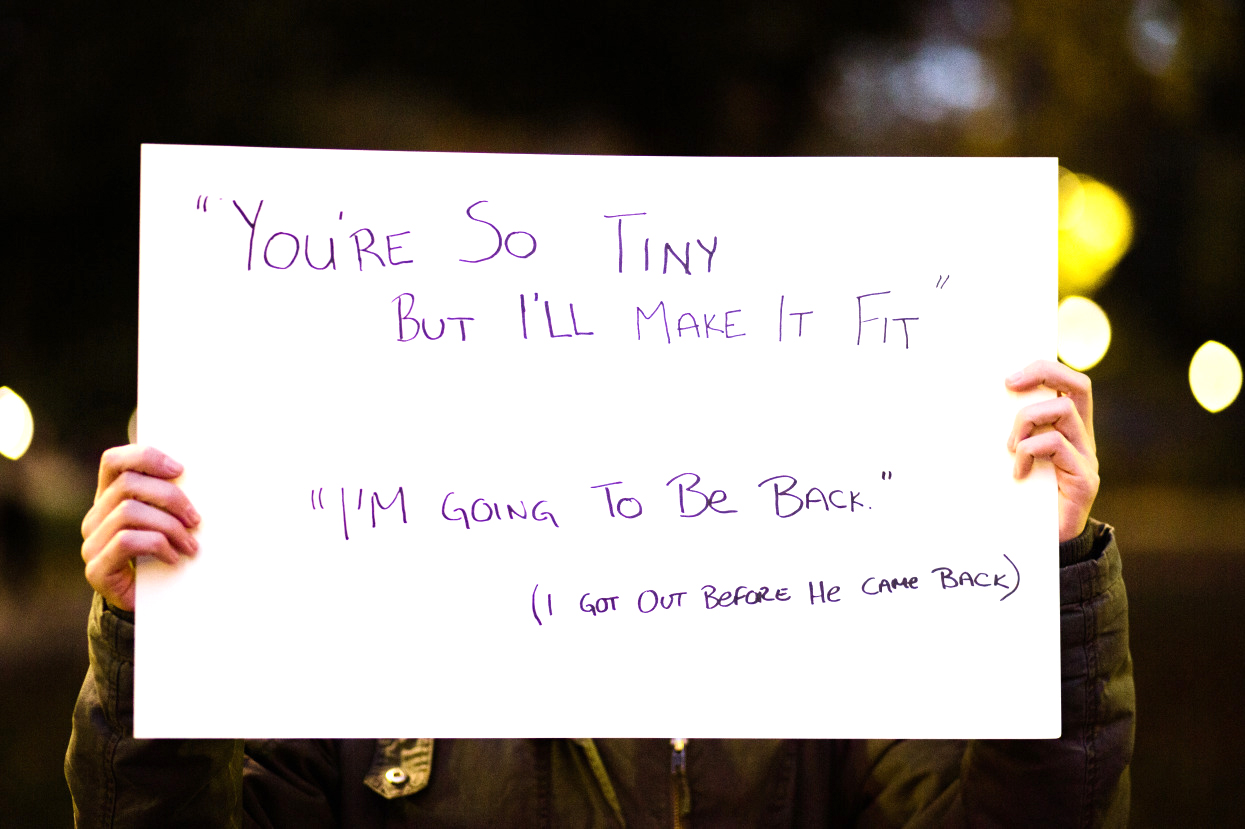 "You're So Tiny
But I'll Make It Fit"
"I'm Going To Be Back."
(I Got Out Before He Came Back)